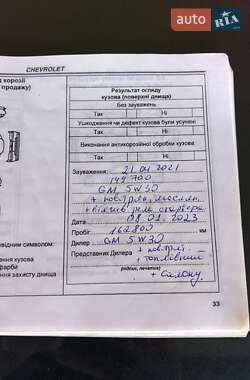 AUTO RIA
й корозії
продажу)
CHEVROLET
Результат огляду
кузова (поверхні днища)
Без зауважень
Так Ні
Ушкодження чи дефект кузова були усунені
Так Ні
Виконання антикорозійної обробки кузова
Так Ні
Зауваження: 21 04 2021
149 700
GM 5W30
Дата 08.01.2023
Пробіг 162800
Дилер GM 5W30
Представник Дилера + повітр.
+ топливний
(підпис, печатка)
+ салону
33
відним символом:
фарби
ення захисту днища